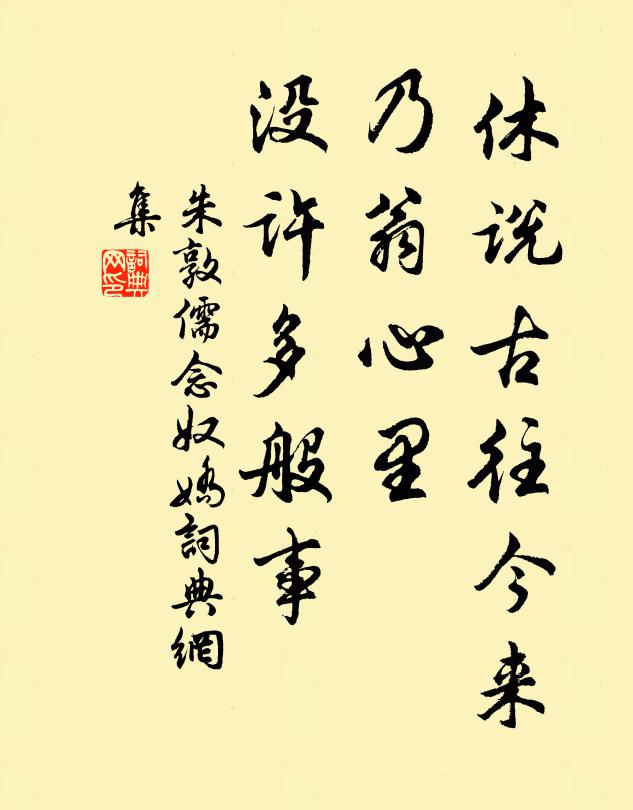 休说古往今来
乃翁心里
没许多般事
朱敦儒念奴嬌詞典網
集
詞典
网印